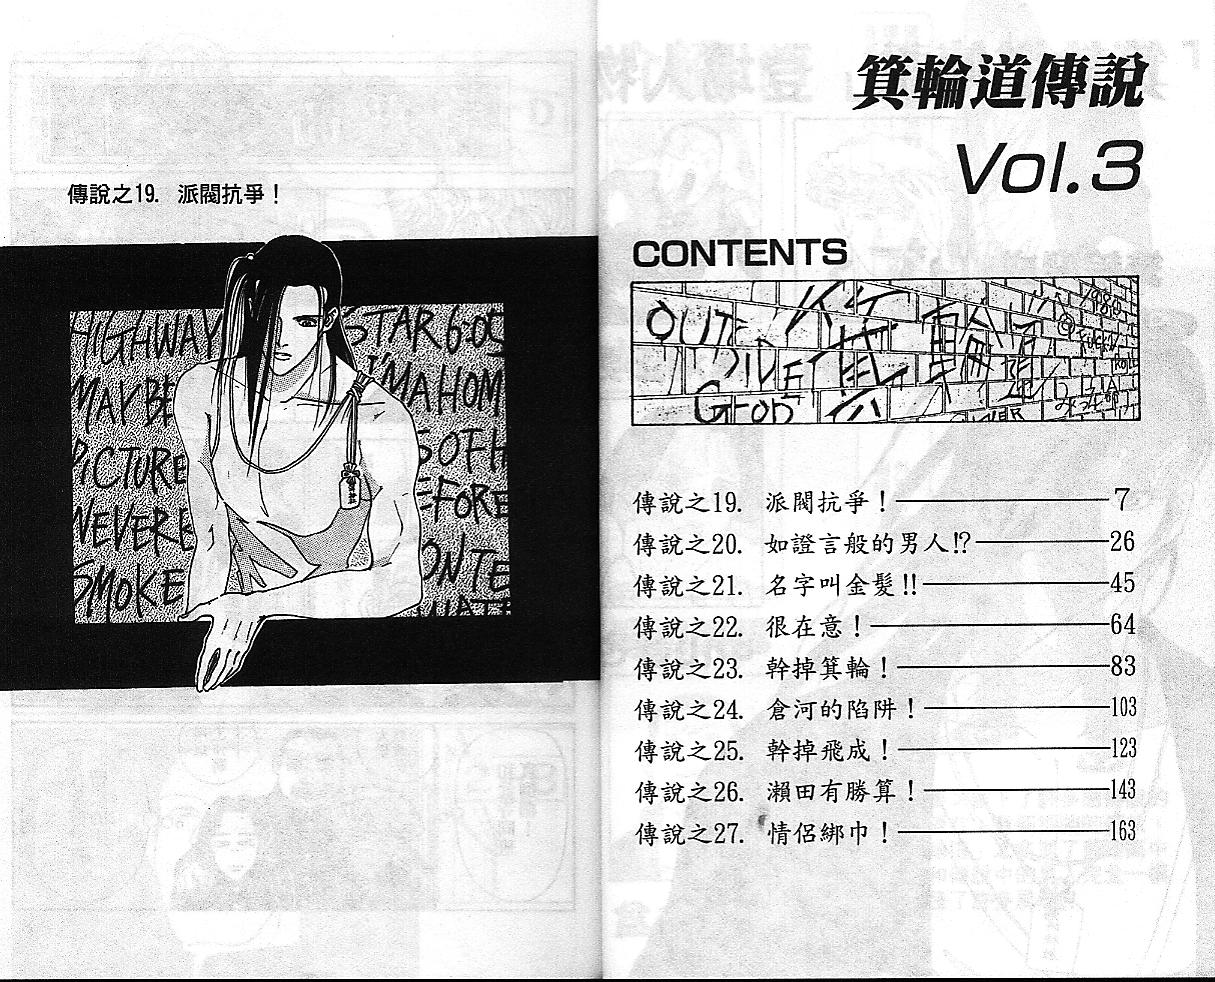 箕輪道傳說
Vol.3
CONTENTS
OUT
SIDE
箕輪道
傳說之19. 派閥抗爭！ 7
傳說之20. 如證言般的男人!? 26
傳說之21. 名字叫金髮!! 45
傳說之22. 很在意！ 64
傳說之23. 幹掉箕輪！ 83
傳說之24. 倉河的陷阱！ 103
傳說之25. 幹掉飛成！ 123
傳說之26. 瀨田有勝算！ 143
傳說之27. 情侶綁巾！ 163
傳說之19. 派閥抗爭！
HIGHWAY STAR 6:05
MAYBE I'M A HOM
PICTURE SOFTH
NEVERE EFORE
SMOKE ON TE